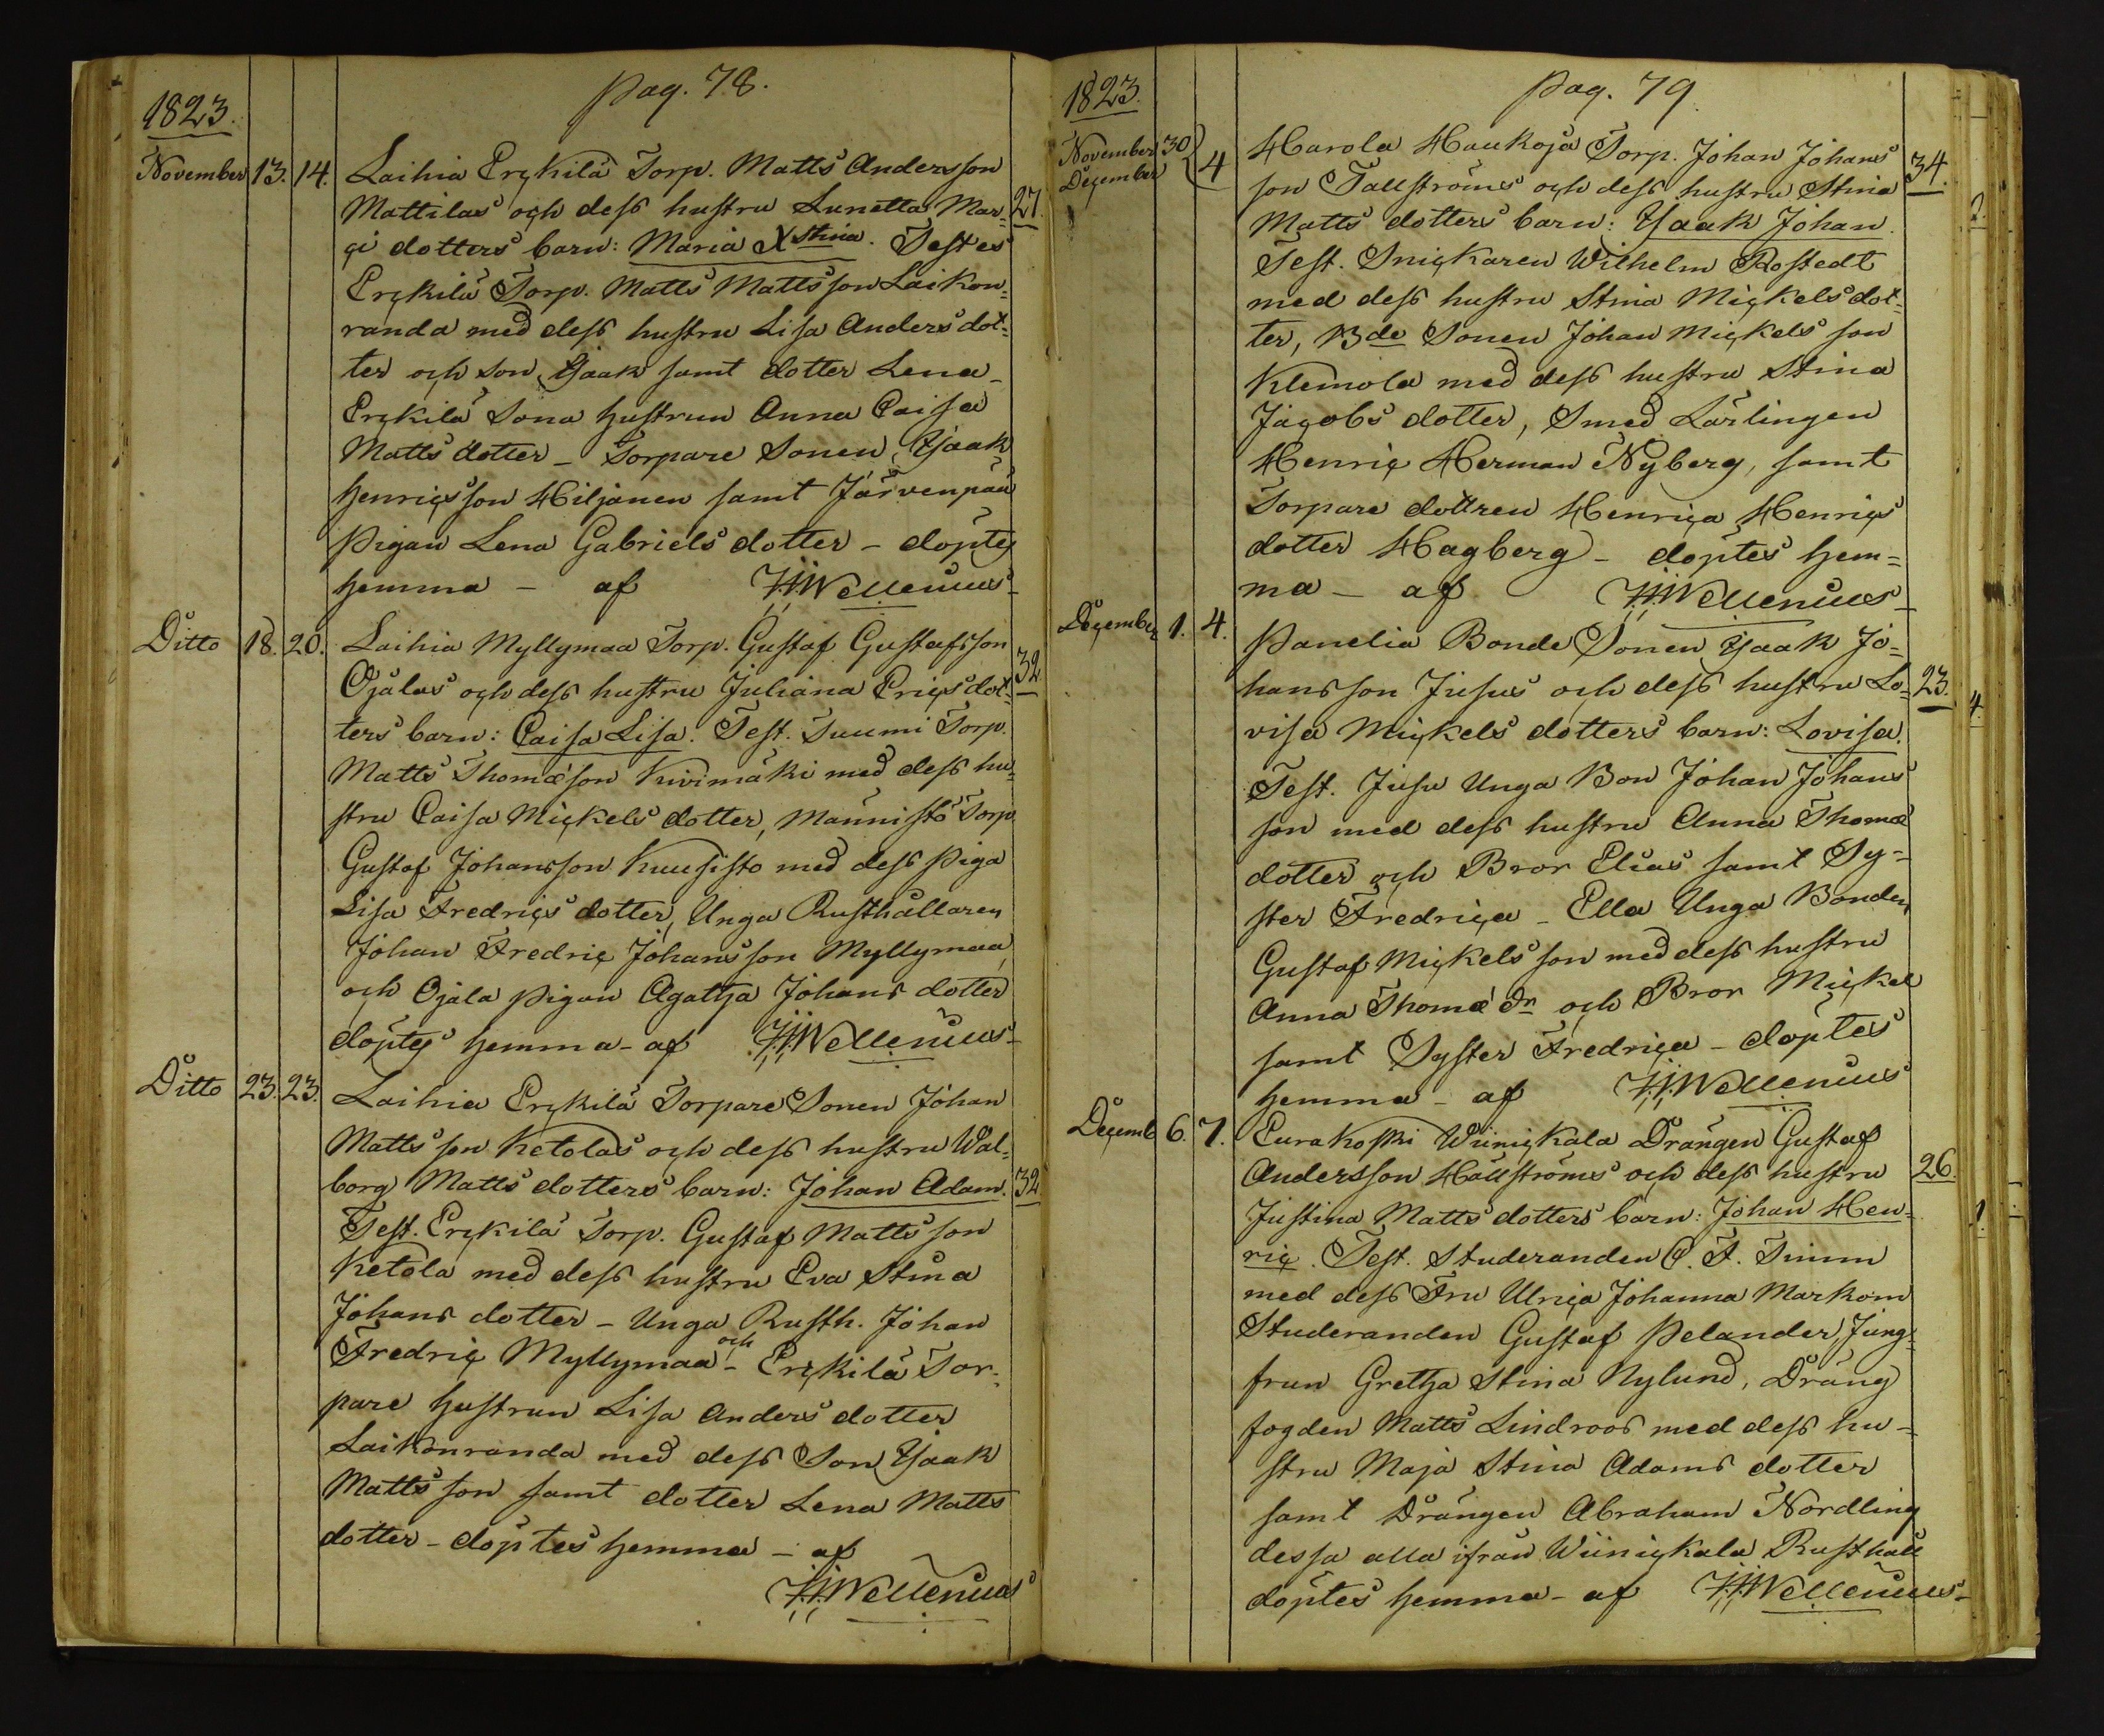 Pag. 78.
1823.
November 13. 14. Laihia Erckilä Torp. Matts Andersson
Mattilas och dess hustru Lunetta Mar= 27.
ci dotters barn: Maria Xstina. Testes
Erckilä Torp. Matts Mattsson Laikon=
randa med dess hustru Lisa Anders dot=
ter och son Isaak samt dotter Lena –
Erckilä Sona hustrun Anna Caisa
Matts dotter – Torpare Sonen, Isaak
Henricsson Hiljanen samt Järvenpää
Pigan Lena Gabriels dotter – döptes
hemma – af H.J.Wellenius
Ditto 18. 20. Laihia Myllymaa Torp. Gustaf Gustafsson
Ojalas och dess hustru Juliana Erics dot= 32
ters barn: Caisa Lisa. Test. Suumi Torp.
Matts Thomæson Kivimäki med dess hu=
stru Caisa Mickels dotter, Männistö Torp.
Gustaf Johansson Kuusisto med dess Piga
Lisa Fredrics dotter, Unga Rusthållaren
Johan Fredric Johansson Myllymaa,
och Ojala Pigan Agatha Johans dotter
döptes hemma – af H.J.Wellenius
Ditto 23. 23. Laihia Erckilä Torpare Sonen Johan
Mattsson Ketolas och dess hustru Wal=
borg Matts dotters barn: Johan Adam. 32
Test. Erckilä Torp. Gustaf Mattsson
Ketola med dess hustru Eva Stina
Johans dotter – Unga Rusth. Johan
Fredric Myllymaa – och Erckilä Tor=
pare hustrun Lisa Anders dotter
Laikonranda med dess Son Isaak
Mattsson samt dotter Lena Matts
dotter – döptes hemma – af
H.J.Wellenius
Pag. 79
1823.
November 30
December 4 Harola Haukoja Torp. Johan Johans
son Fallströms och dess hustru Stina 34.
Matts dotters barn: Isaak Johan.
Test. Snickaren Wilhelm Rostedt
med dess hustru Stina Mickels dot=
ter, Bde Sonen Johan Mickels son
Klemola med dess hustru Stina
Jacobs dotter, Smed Lärlingen
Henric Herman Nyberg, samt
Torpare dottren Henrica Henrics
dotter Hagberg – döptes hem=
ma – af H.J.Wellenius
December 1. 4. Panelia Bonde Sonen Isaak Jo=
hansson Jusus och dess hustru Lo= 23.
visa Mickels dotters barn: Lovisa.
Test. Jusu Unga Bon Johan Johans
son med dess hustru Anna Thomæ
dotter och Bror Elias samt Sy=
ster Fredrica – Ella Unga Bonden
Gustaf Mickelsson med dess hustru
Anna Thomæ dr och Bror Mickel
samt Syster Fredrica – döptes
hemma – af H.J.Wellenius
Decemb 6. 7. Eurakoski Wiinickala Drängen Gustaf
Andersson Hällströms och dess hustru 26.
Justina Matts dotters barn: Johan Hen=
ric. Test. Studeranden C. F.
med dess Fru Ulrica Johanna
Studeranden Gustaf Pelander, Jung=
frun Gretha Stina Nylund, Dräng
fogden Matts Lindroos med dess hu=
stru Maja Stina Adams dotter
samt Drängen Abraham Nordling
dessa alla ifrån Wiinickala Rusthåll
döptes hemma – af H.J.Wellenius
2
4
1